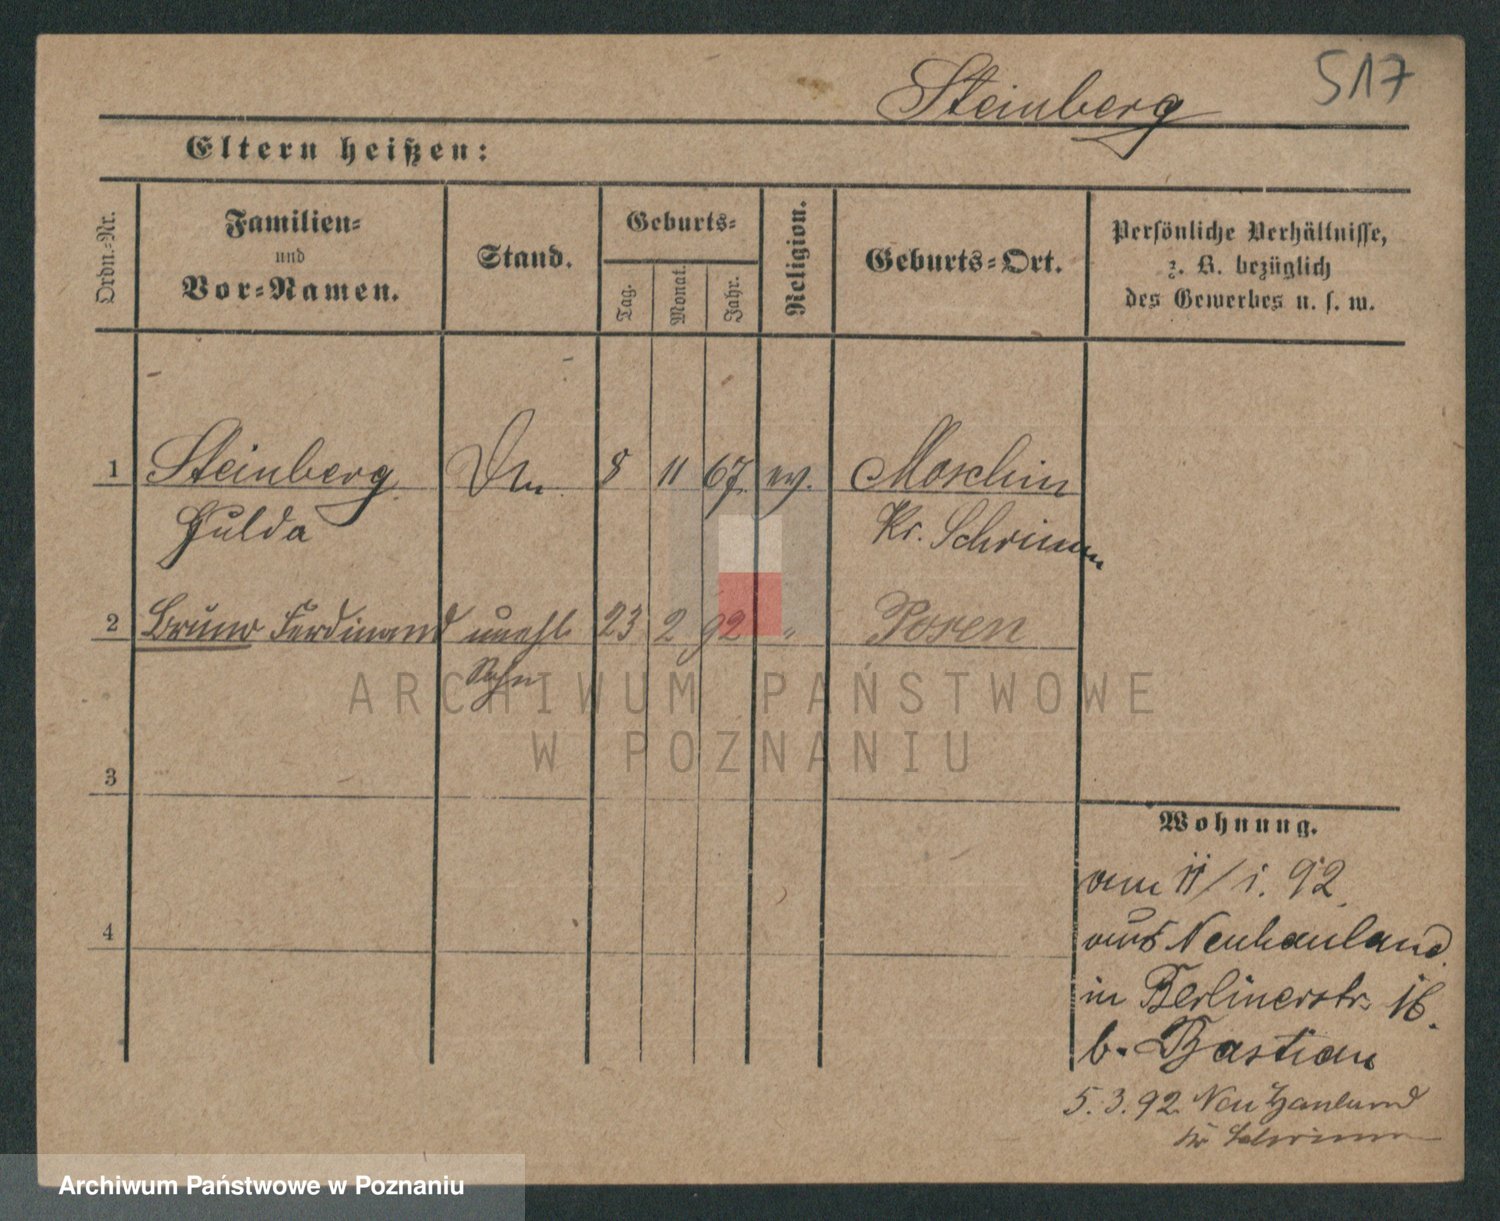 517
Steinberg
Eltern heißen:
Ordn.-Nr.
Familien-
und
Vor-Namen.
Stand.
Geburts-
Tag.
Monat.
Jahr.
Religion.
Geburts-Ort.
Persönliche Verhältnisse,
z. B. bezüglich
des Gewerbes u. s. w.
1 Steinberg 8 11 67. ev. Moschin
Hulda Kr. Schrimm
2 Bruno Ferdinand unehl. 23 2 92 " Posen
Sohn
ARCHIWUM PAŃSTWOWE
W POZNANIU
3
Wohnung.
4
am 11/1. 92.
aus Neuhauland
in Berlinerstr. 16.
b. Bastian
5.3.92. Neu Hauland
Kr Schrimm
Archiwum Państwowe w Poznaniu